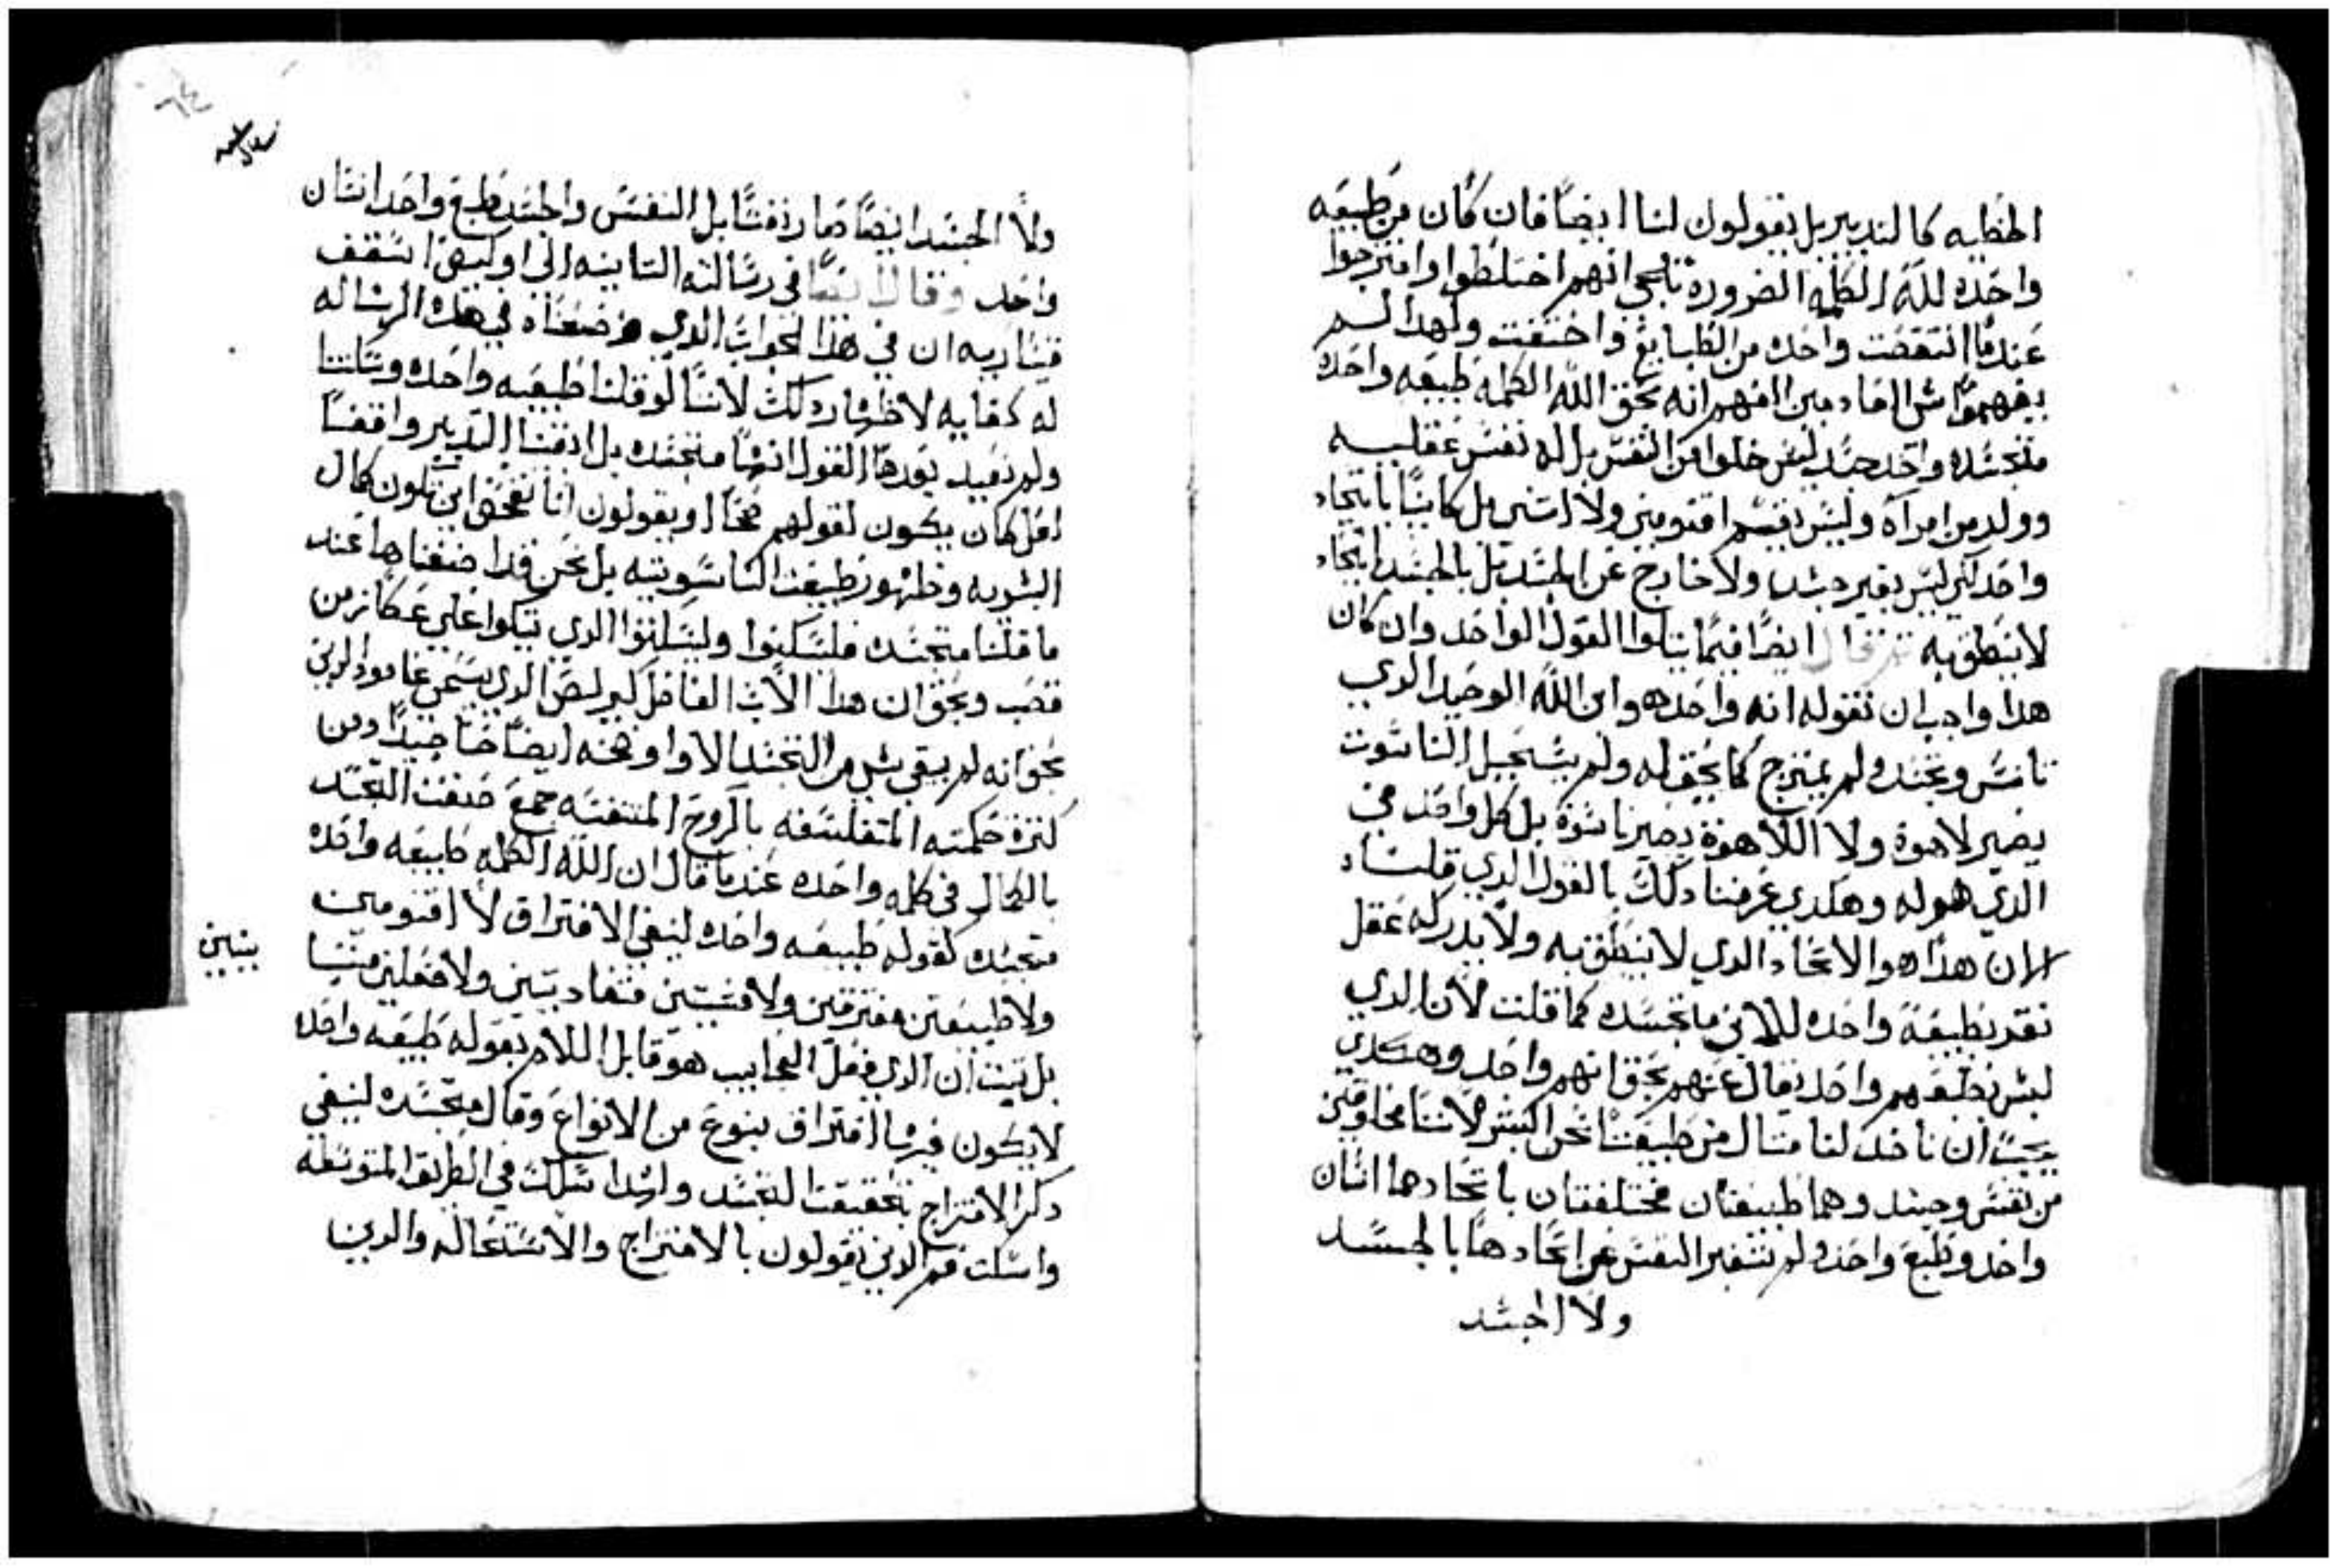 الخطايه كالتدبير بل يقولون لنا ايضًا فان كان من طبيعه
واحده لله الكلمه الضروره تلجي انهم اختلطوا وامتزجوا
عندما انتقصت واحده من الطبايع واختفت ولهدا لم
يفهموا ش الفادمين الفهم انه بحق الله الكلمه طبيعه واحده
متجسده واحد جسد ليس خلوا من النفس بل له نفس عقليه
وولد من امرآه وليس نقسم اقنومين ولا اتنين بل كاينًا باتحاد
واحد لكن ليس بغير جسد ولا خارج عن الجسد بل بالجسد اتحاد
لا ينطق به تم قال ايضًا فيما يتلوا القول الواحد وان كان
هدا واجب ان نقوله انه واحد هو ابن الله الوحيد الدي
تانس وتجسد ولم يمتزج كما يحق له ولم يستحيل الناسوت
يصير لاهوة ولا اللاهوة يصير ناسوة بل كل واحد في
الدي هو له وهكدي عرفنا دلك بالقول الدي قلناه
لان هدا هو الاتحاد الدي لا ينطق به ولا يدركه عقل
نقر بطبيعة واحده للابن متجسده كما قلت لان الدي
ليس بطبعهم واحد يقال عنهم بحق انهم واحد وهكدي
يجب ان ناخد لنا متال من طبيعتنا نحن البشر لاننا مخلوقين
من نفس وجسد وهما طبيعتان مختلفتان باتحادهما اتنان
واحد وطبع واحده ولم تتغير النفس عن اتحادها بالجسد
ولا الجسد
٦٤
ولا الجسد ايضًا صار نفسًا بل النفس والجسد طبع واحد انسان
واحد وقال ايضًا في رسالته التانيه الى اوليقن اسقف
قيساريه ان في هدا الجواب الدي وضعناه في هده الرساله
له كفايه لاظهار دلك لاننا لو قلنا طبيعه واحده وسكتنا
ولم نعيد بعدها القول انها متجسده بل ادفنا التدبير واقفًا
لعل كان يكون لقولهم محًا او يقولون انا نفحص اين تكون كمال
البشريه وظهور طبيعت الناسوتيه بل نحن قد اضفناها عند
ما قلنا متجسده فليسكتوا وليسكتوا الدي يتكوا على عكاز من
قصب وبحق ان هدا الآب الفاضل كيرلص الدي يسمى عامود الدين
بحق انه لم يبقي شي من التجسد الا واوضحه ايضاحًا جيدًا ومن
كترة حكمته المتفلسفه بالروح المتنفسه جمع ضيفت التجسد
بالكمال في كلمه واحده عندما قال ان الله الكلمه طبيعه واحده
متجسده كقوله طبيعه واحده لينفي الافتراق لا اقنومين
ولا طبيعتين مفترقتين ولا مشيتين متعاديتين ولا فعلين منتسا
بنين
بل تبت ان الدي فعل العجايب هو قابل اللالم بقوله طبيعه واحده
لا يكون فيها افتراق بنوع من الانواع وقال متجسده لينفي
دكر الامتزاج بتحقيقنا التجسد وايدا سلك في الطريق المتوسطه
واسكت فم الدين يقولون بالامتزاج والاستحاله والدين